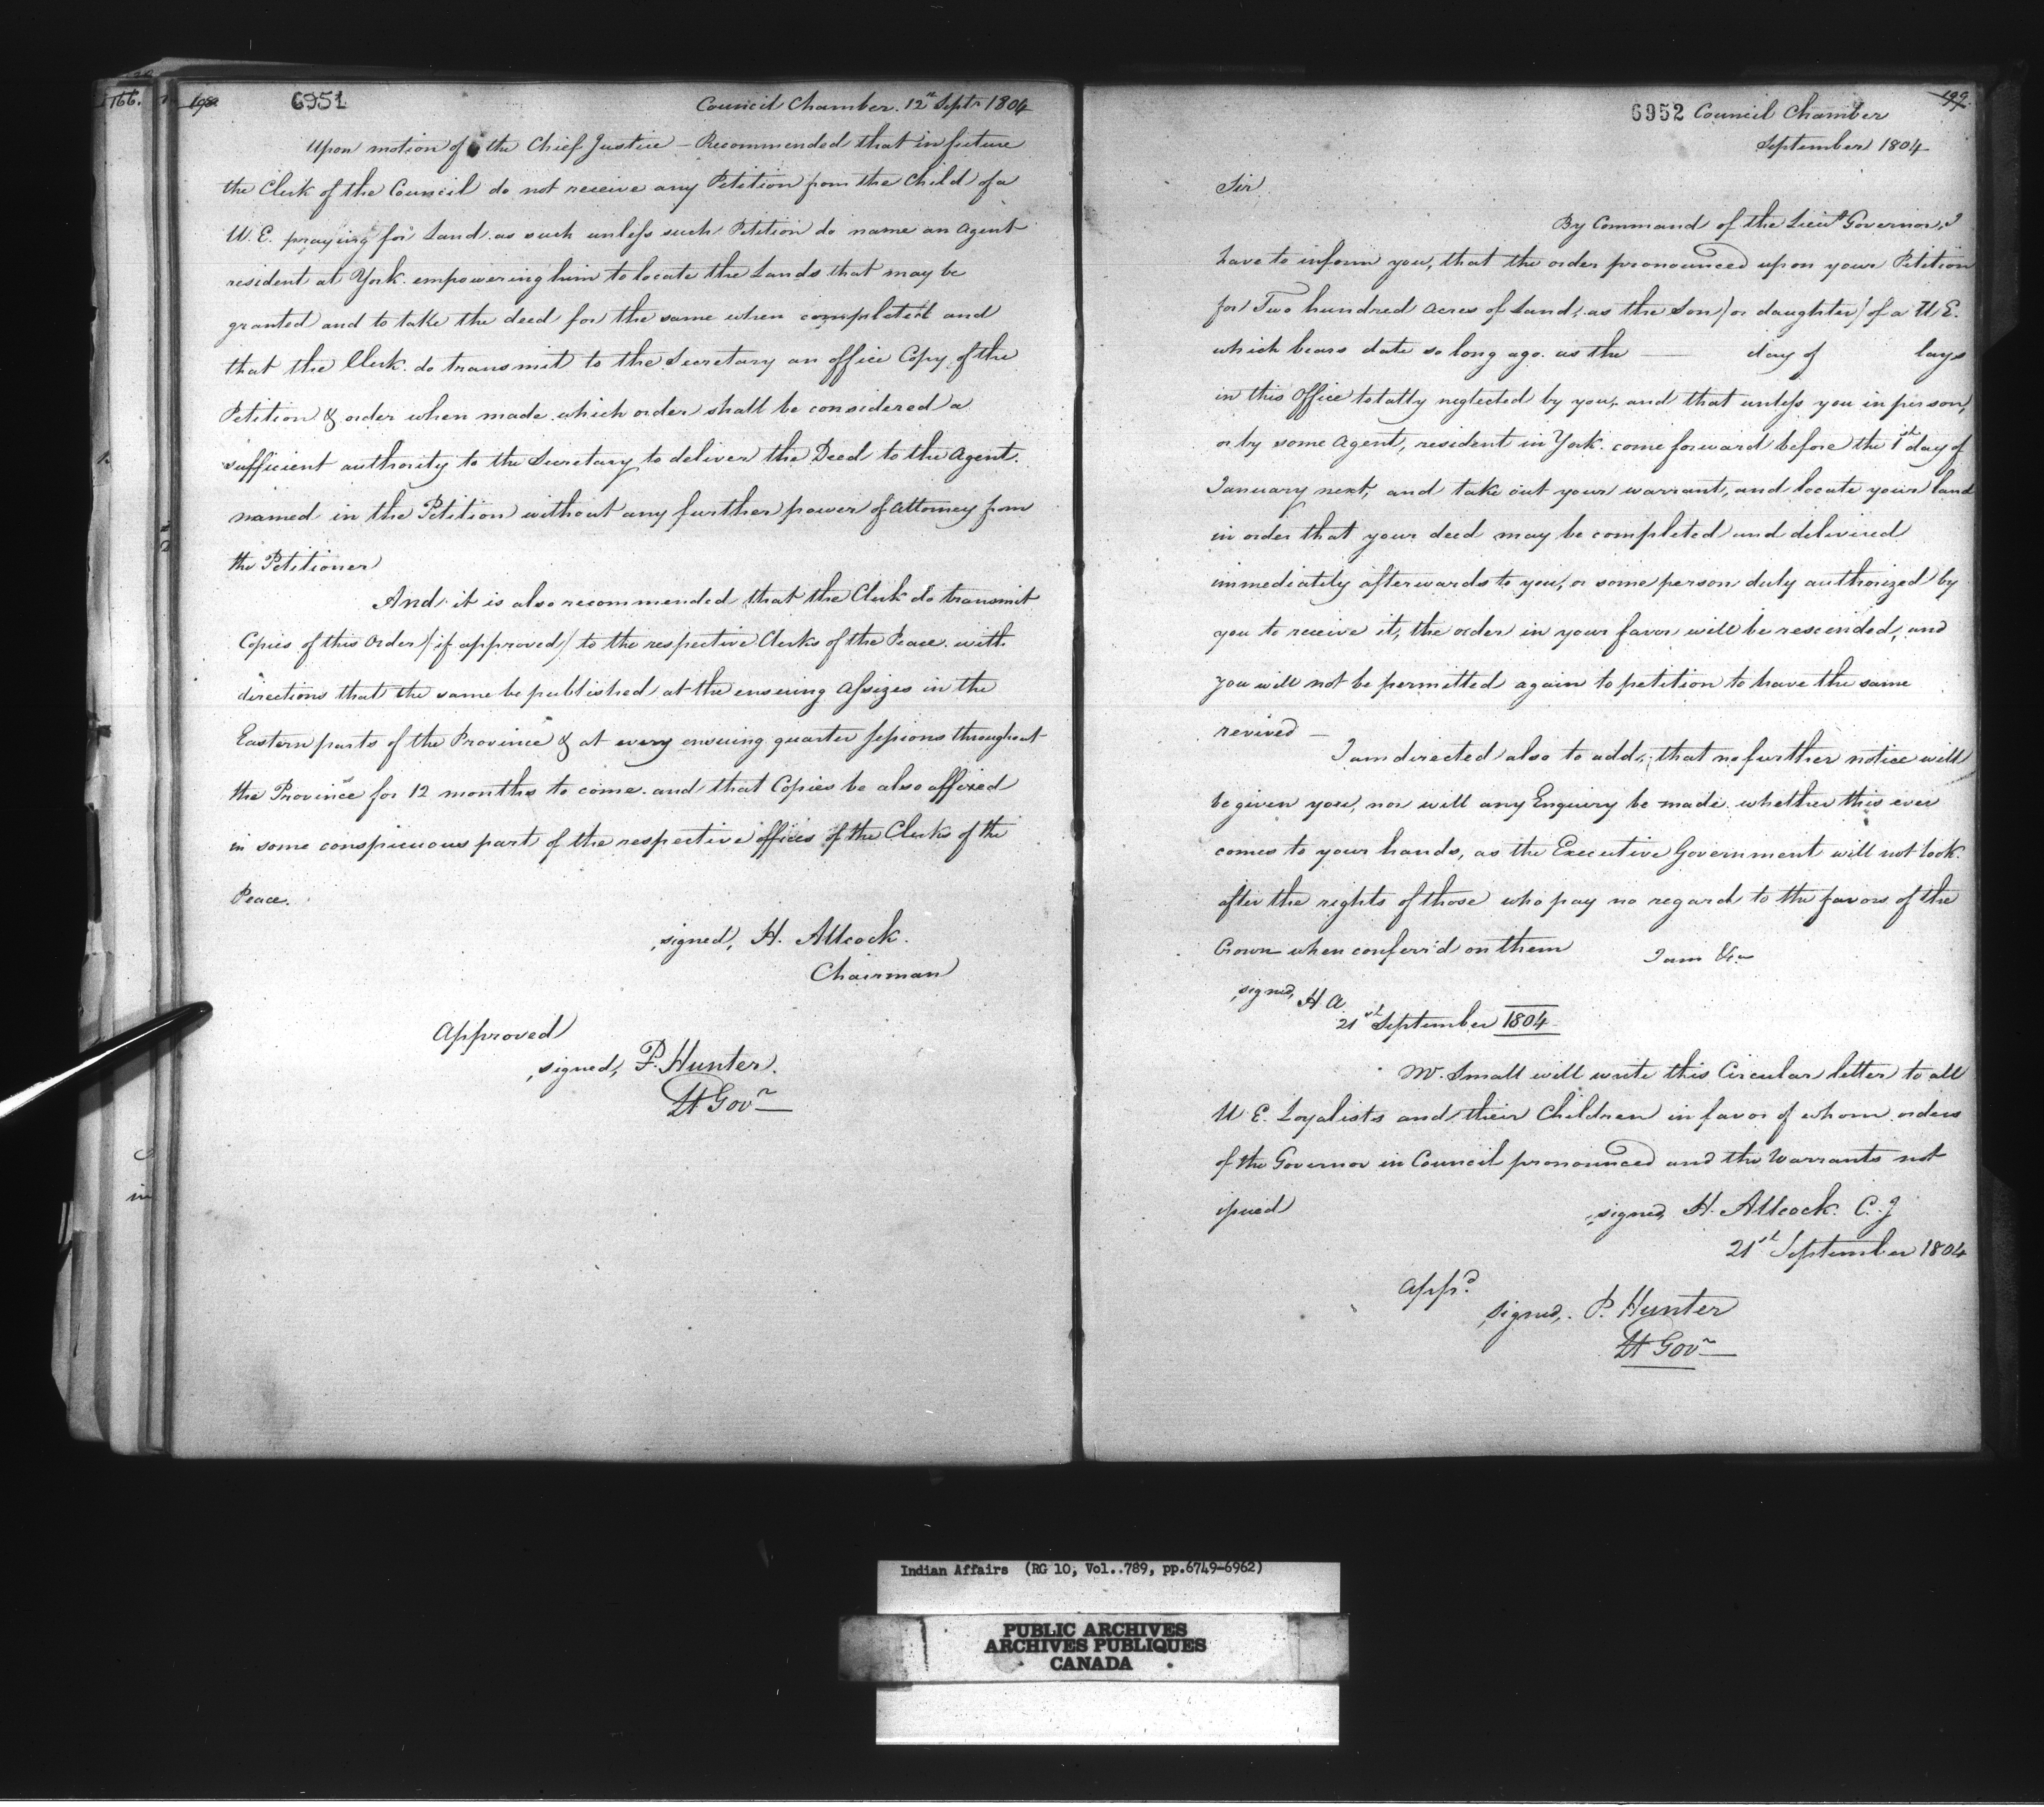 166.
198.
6951
Council Chamber. 12th Septr 1804
Upon motion of the Chief Justice – Recommended that in future
the Clerk of the Council do not receive any Petition from the Child of a
U. E. praying for Land as such unless such Petition do name an Agent
resident at York empowering him to locate the Lands that may be
granted and to take the deed for the same when completed and
that the Clerk do transmit to the Secretary an office Copy of the
Petition & order when made which order shall be considered a
sufficient authority to the Secretary to deliver the Deed to the Agent.
named in the Petition without any further power of Attorney from
the Petitioner
And it is also recommended that the Clerk do transmit
Copies of this Order / if approved / to the respective Clerks of the Peace with
directions that the same be published at the ensuing Assizes in the
Eastern parts of the Province & at every ensuing quarter sessions throughout
the Province for 12 months to come. and that Copies be also affixed
in some conspicuous part of the respective offices of the Clerks of the
Peace.
signed, H. Allcock.
Chairman
Approved
signed, P. Hunter.
Lt Govr
199.
6952 Council Chamber
September 1804
Sir
By Command of the Lieut Governor, I
have to inform you, that the order pronounced upon your Petition
for Two hundred Acres of Land, as the Son / or daughter / of a U E.
which bears date so long ago as the — day of lays
in this Office totally neglected by you, and that unless you in person,
or by some Agent, resident in York come forward before the 1st day of
January next, and take out your warrant, and locate your land
in order that your deed may be completed and delivered
immediately afterwards to you, or some person duly authorized by
you to receive it, the order in your favor will be rescinded, and
you will not be permitted again to petition to have the same
revived –
I am directed also to add, that no further notice will
be given you, nor will any Enquiry be made whether this ever
comes to your hands, as the Executive Government will not look
after the rights of those who pay no regard to the favors of the
Crown when conferr'd on them I am &ca
signed, H. A.
21st September 1804
Mr. Small will write this Circular letter to all
U E. Loyalists and their Children in favor of whom orders
of the Governor in Council pronounced and the Warrants not
issued
signed, H. Allcock. C. J
21st September 1804
Appd.
signed, P. Hunter
Lt Govr
Indian Affairs (RG 10, Vol..789, pp.6749-6962)
PUBLIC ARCHIVES
ARCHIVES PUBLIQUES
CANADA